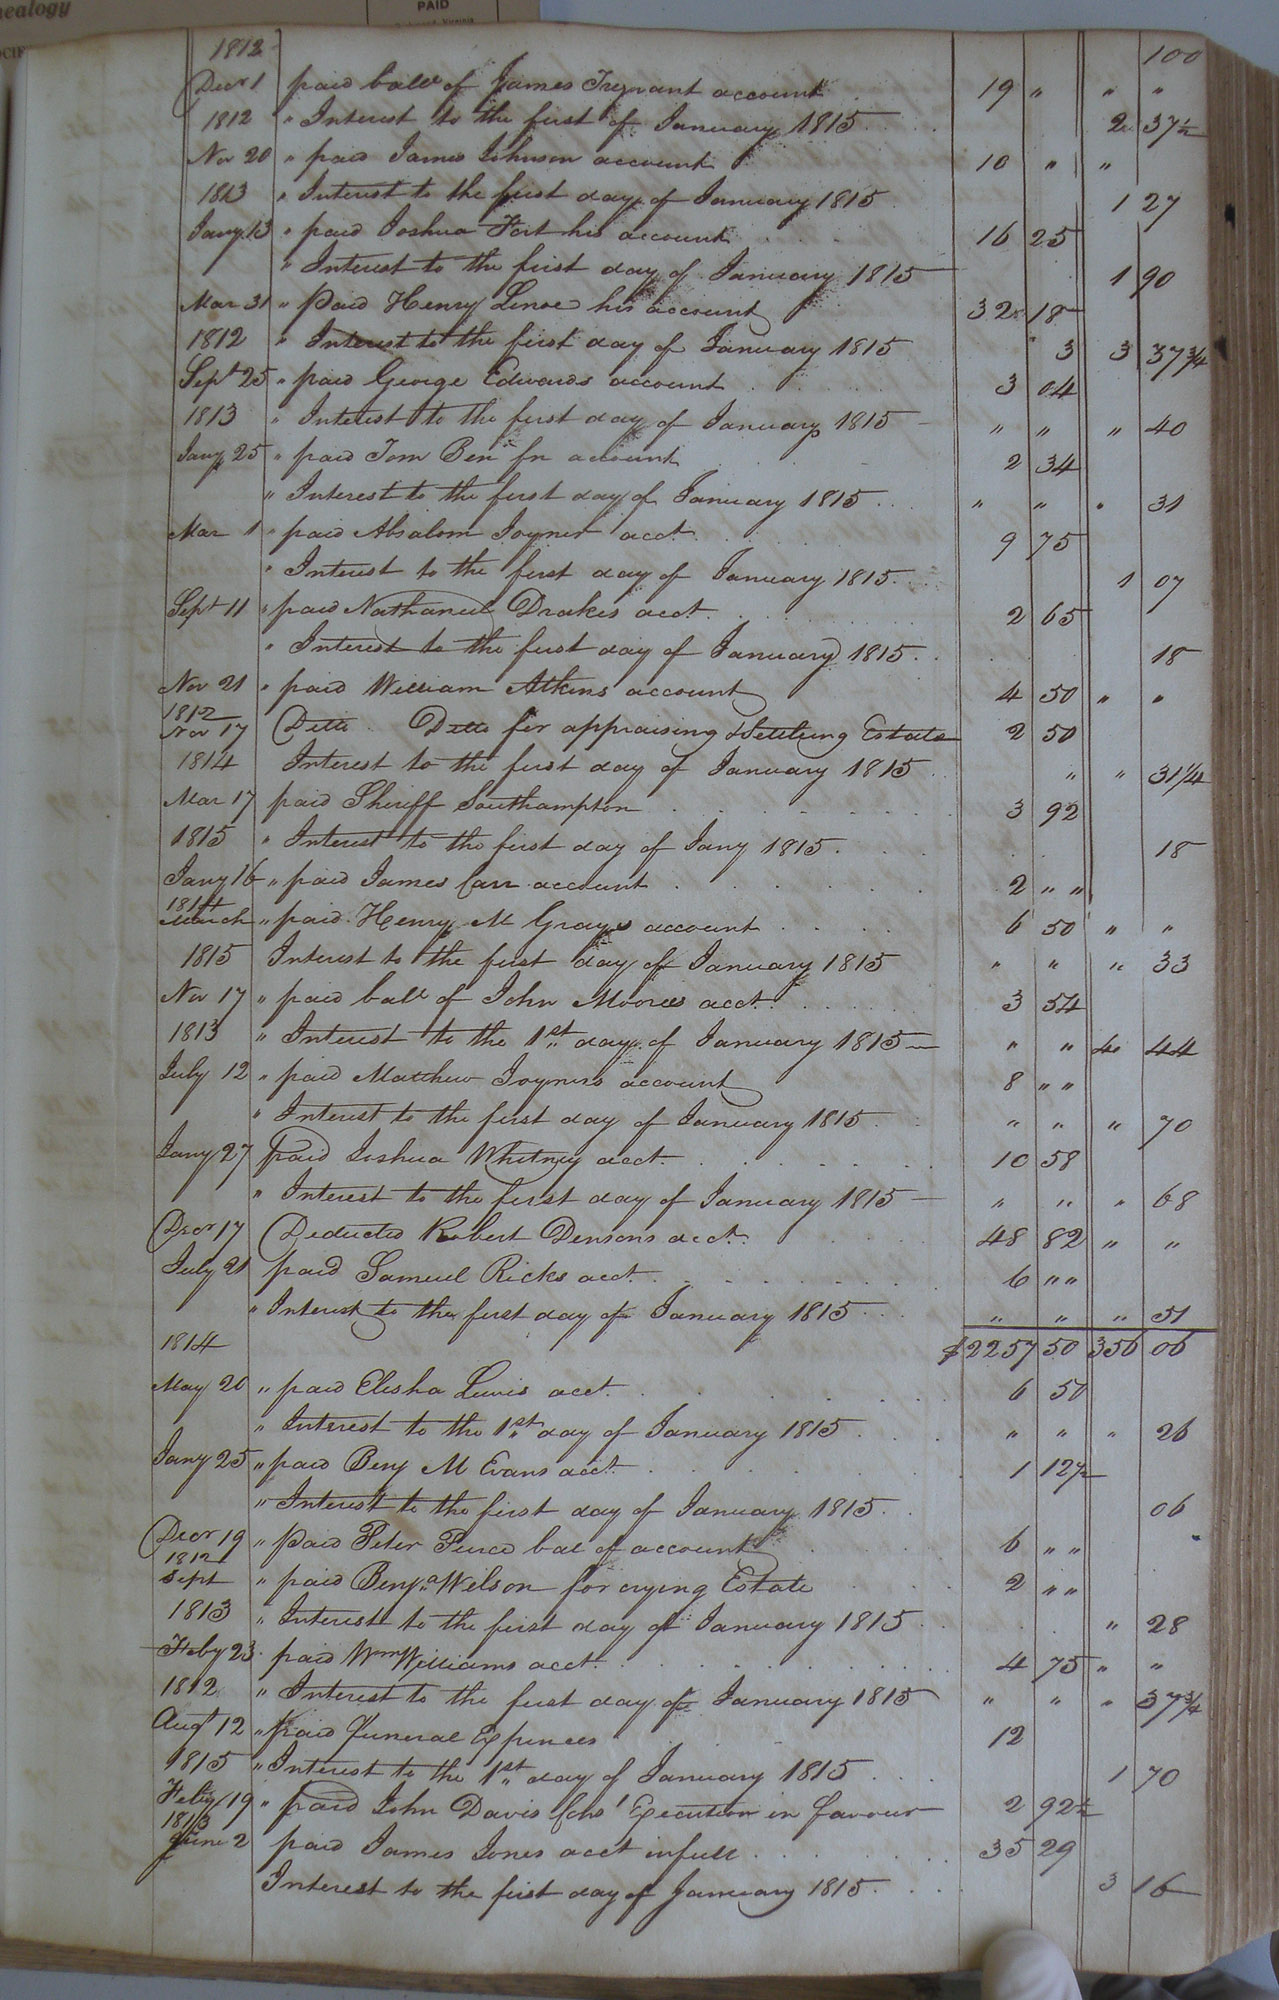 nealogy
PAID
1812 100
Decr 1 paid balce of James Tregnant account 19 " " "
1812 " Interest to the first of January 1815 2 37½
Nov 20 " paid James Johnson account 10 " "
1813 " Interest to the first day of January 1815 1 27
Jany 13 " paid Joshua Fort his account 16 25
" Interest to the first day of January 1815 1 90
Mar 31 " Paid Henry Lenoe his account 32 18
1812 " Interest to the first day of January 1815 " 3 3 37¾
Sept 25 " paid George Edwards account 3 04
1813 " Interest to the first day of January 1815 " " " 40
Jany 25 " paid Tom Ben fn account 2 34
" Interest to the first day of January 1815 " " " 31
Mar 1 " paid Absalom Joyner acct 9 75
" Interest to the first day of January 1815 1 07
Sept 11 " paid Nathaniel Drakes acct. 2 65
" Interest to the first day of January 1815 18
Nov 21 " paid William Atkins account 4 50 " "
1812
Nov 17 Ditto Ditto for appraising & Settling Estate 2 50
1814 Interest to the first day of January 1815 " " 31¼
Mar 17 paid Sheriff Southampton 3 92
1815 " Interest to the first day of Jany 1815 18
Jany 16 " paid James Carr account 2 " "
1814
March " paid Henry M Grays account 6 50 " "
1815 Interest to the first day of January 1815 " " " 33
Nov 17 " paid balce of John Moores acct 3 54
1813 " Interest to the 1st day of January 1815 " " 4 44
July 12 " paid Matthew Joyners account 8 " "
" Interest to the first day of January 1815 " " " 70
Jany 27 paid Joshua Whitney acct. 10 58
" Interest to the first day of January 1815 " " " 68
Decr 17 Deducted Robert Densons acct. 48 82 " "
July 21 paid Samuel Ricks acct. 6 " "
" Interest to the first day of January 1815 " " " 51
1814 $2257 50 356 06
May 20 " paid Elisha Lewis acct. 6 50
" Interest to the 1st day of January 1815 " " " 26
Jany 25 " paid Benj M Evans acct. 1 12½
" Interest to the first day of January 1815 06
Decr 19 " paid Peter Pierce bal of account 6 " "
1812
Sept " paid Benja Wilson for crying Estate 2 " "
1813 " Interest to the first day of January 1815 " 28
Feby 23 paid Wm Williams acct. 4 75 " "
1812 " Interest to the first day of January 1815 " " " 37¾
Augt 12 " paid funeral Expences 12
1815 " Interest to the 1st day of January 1815 1 70
Feby 19 " paid John Davis Execution in favour 2 92½
1813
June 2 paid James Jones acct in full 35 29
Interest to the first day of January 1815 3 16